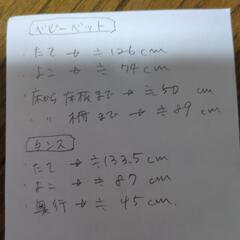 ベビーベット
・たて → ≒ 126 cm
・よこ → ≒ 74 cm
・床から床板まで → ≒ 50 cm
・ 〃 柵まで → ≒ 89 cm
タンス
・たて → ≒ 133.5 cm
・よこ → ≒ 87 cm
・奥行 → ≒ 45 cm.